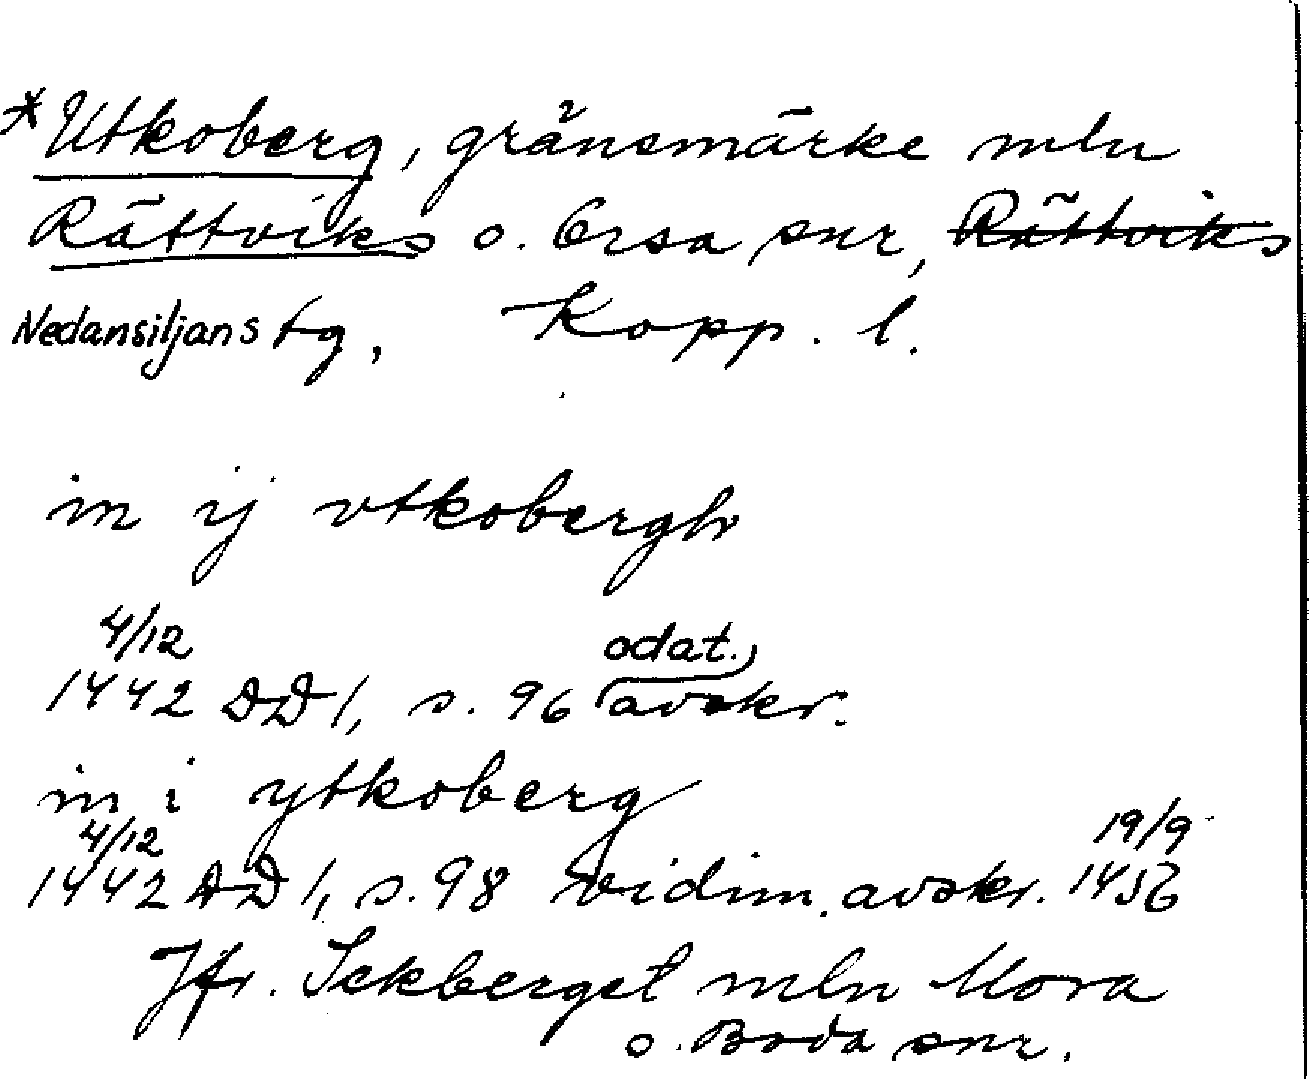 *Utkoberg, gränsmärke mln
Rättviks o. Orsa snr, Rättviks
Nedansiljans tg, Kopp. l.
in ij vtkobergh
4/12 odat.
1442 DD 1, s. 96 avskr.
in i ytkoberg
4/12 19/9
1442 DD 1, s. 98 vidim. avskr. 1456
Jfr. Ickberget mln Mora
o. Boda snr.